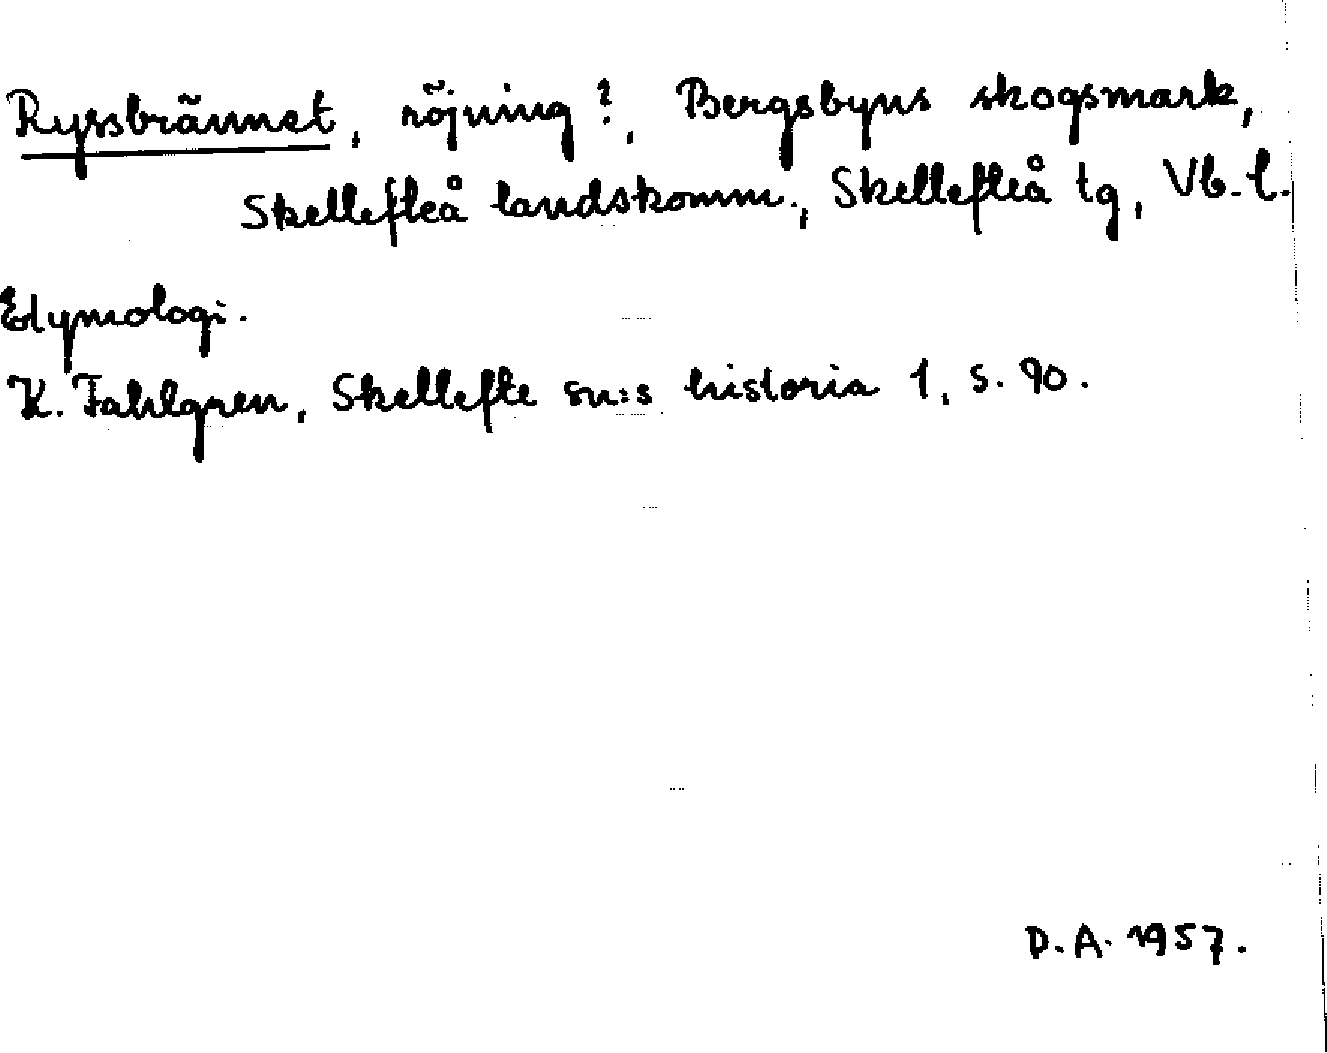 Ryssbrännet, röjning?, Bergsbyns skogsmark,
Skellefteå landskomm., Skellefteå tg, Vb. l.
Etymologi.
K. Fahlgren, Skellefte sn:s historia 1, s. 90.
D.A. 1957.